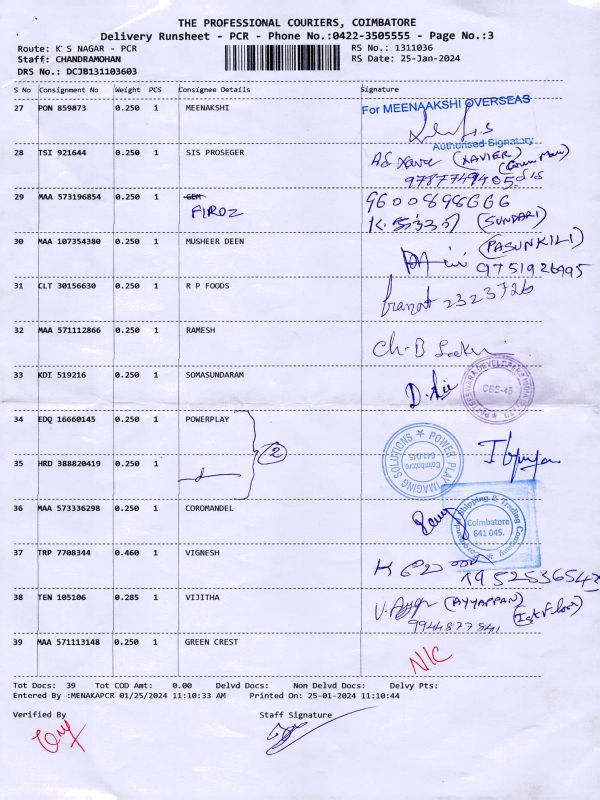 THE PROFESSIONAL COURIERS, COIMBATORE
Delivery Runsheet - PCR - Phone No.:0422-3505555 - Page No.:3
Route: K S NAGAR - PCR
RS No.: 1311036
Staff: CHANDRAMOHAN
RS Date: 25-Jan-2024
DRS No.: DCJB131103603
S No Consignment No Weight PCS Consignee Details Signature
27 PON 859873 0.250 1 MEENAKSHI
For MEENAAKSHI OVERSEAS
Authorised Signatory
28 TSI 921644 0.250 1 SIS PROSEGER
(XAVIER)
29 MAA 573196854 0.250 1 GEM
FIROZ
9600898666
(SUNDARI)
30 MAA 107354380 0.250 1 MUSHEER DEEN
(PASUNKILI)
9751926995
31 CLT 30156630 0.250 1 R P FOODS
2323726
32 MAA 571112866 0.250 1 RAMESH
33 KDI 519216 0.250 1 SOMASUNDARAM
34 EDQ 16660145 0.250 1 POWERPLAY
2
POWER PLAY IMAGING SOLUTIONS
Coimbatore
641 045.
35 HRD 388820419 0.250 1
36 MAA 573336298 0.250 1 COROMANDEL
Shipping & Trading Company
Coimbatore
641 045.
37 TRP 7708344 0.460 1 VIGNESH
38 TEN 105106 0.285 1 VIJITHA
(AYYAPPAN)
(1st Floor)
9944877841
39 MAA 571113148 0.250 1 GREEN CREST
N/C
Tot Docs: 39 Tot COD Amt: 0.00 Delvd Docs: Non Delvd Docs: Delvy Pts:
Entered By :MENAKAPCR 01/25/2024 11:10:33 AM Printed On: 25-01-2024 11:10:44
Verified By
Staff Signature